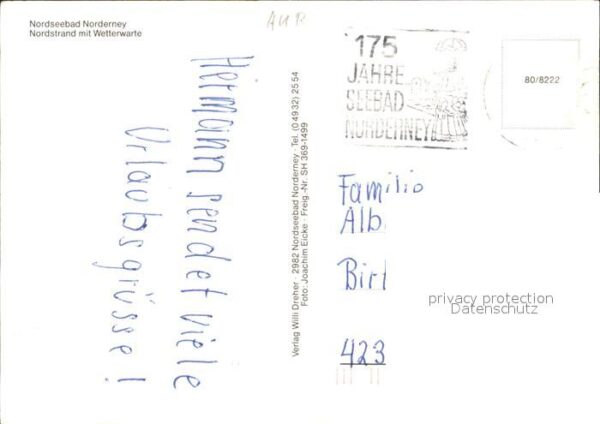 Nordseebad Norderney
Nordstrand mit Wetterwarte
175
JAHRE
SEEBAD
NORDERNEY
80/8222
Hermann sendet viele
Urlaubsgrüsse!
Verlag Willi Dreher · 2982 Nordseebad Norderney · Tel. (0 49 32) 25 54
Foto: Joachim Eicke · Freig.-Nr. SH 369-1499
Familie
Alb
Birl
423
privacy protection
Datenschutz